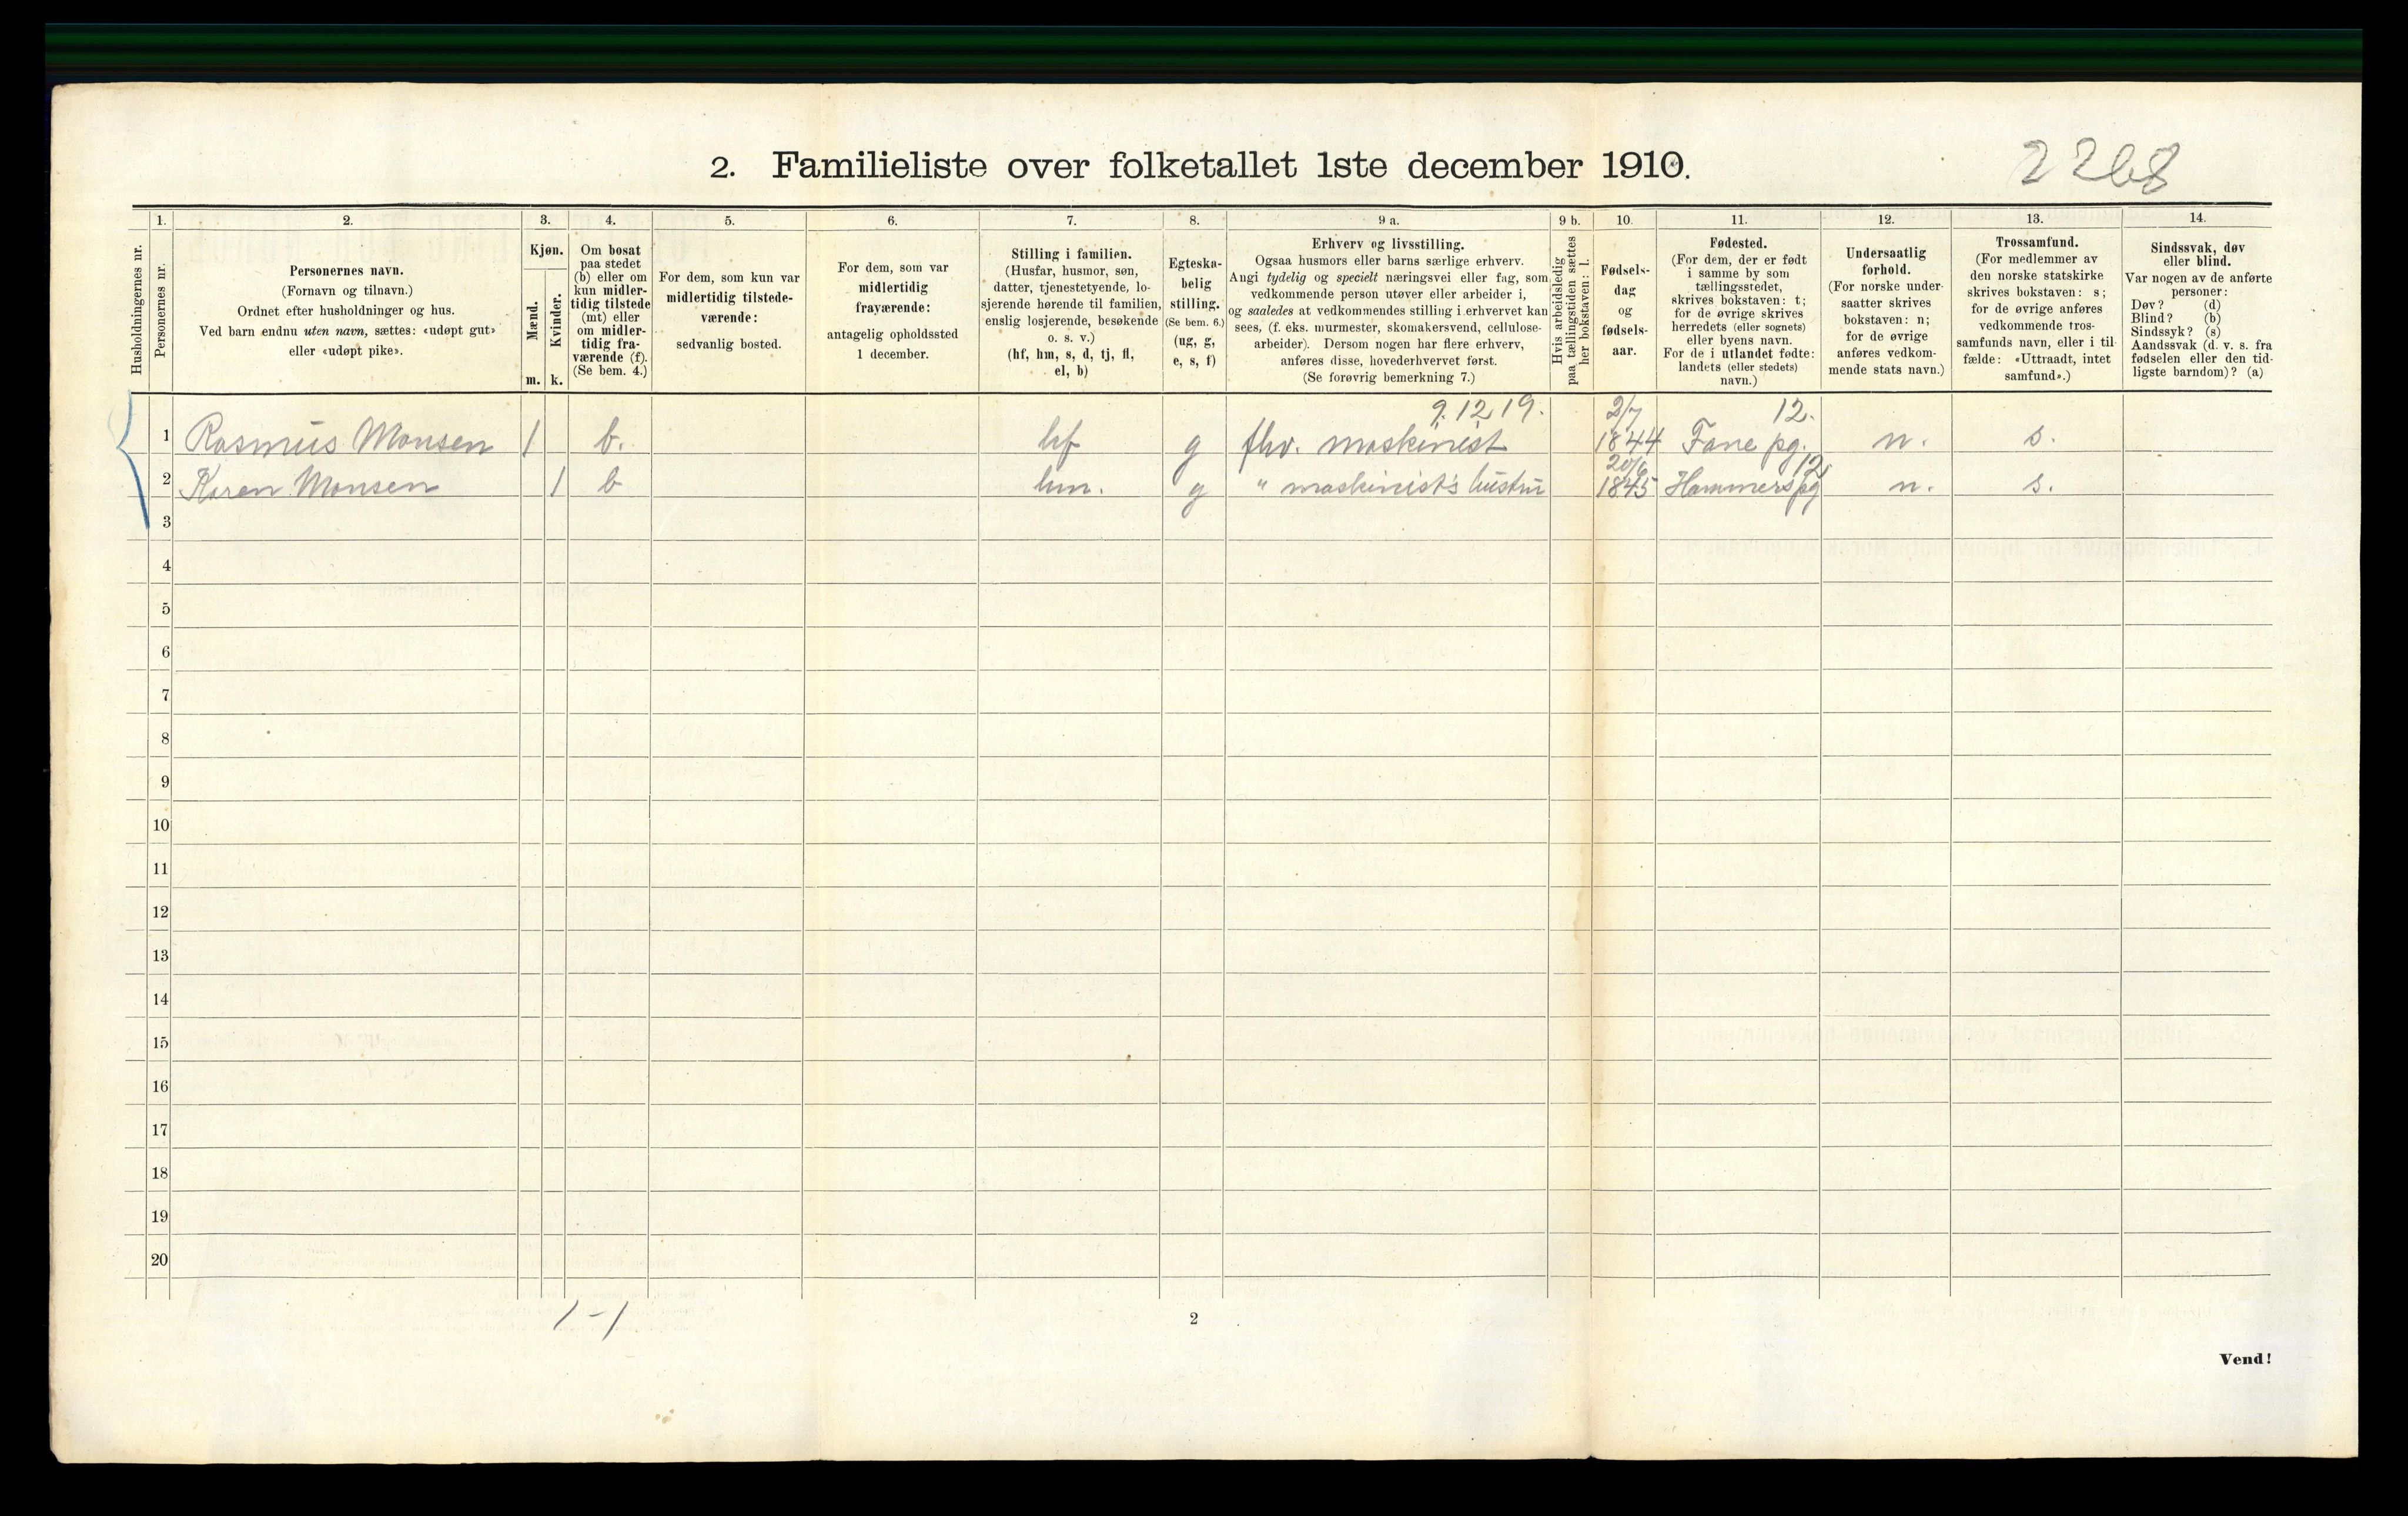 2268
2. Familieliste over folketallet 1ste december 1910.
1. 2. 3. 4. 5. 6. 7. 8. 9 a. 9 b. 10. 11. 12. 13. 14.
Husholdningernes nr.
Personernes nr.
Personernes navn.
(Fornavn og tilnavn.)
Ordnet efter husholdninger og hus.
Ved barn endnu uten navn, sættes: «udøpt gut»
eller «udøpt pike».
Kjøn.
Mænd.
Kvinder.
m. k.
Om bosat
paa stedet
(b) eller om
kun midler-
tidig tilstede
(mt) eller
om midler-
tidig fra-
værende (f).
(Se bem. 4.)
For dem, som kun var
midlertidig tilstede-
værende:
sedvanlig bosted.
For dem, som var
midlertidig
fraværende:
antagelig opholdssted
1 december.
Stilling i familien.
(Husfar, husmor, søn,
datter, tjenestetyende, lo-
sjerende hørende til familien,
enslig losjerende, besøkende
o. s. v.)
(hf, hm, s, d, tj, fl,
el, b)
Egteska-
belig
stilling.
(Se bem. 6.)
(ug, g,
e, s, f)
Erhverv og livsstilling.
Ogsaa husmors eller barns særlige erhverv.
Angi tydelig og specielt næringsvei eller fag, som
vedkommende person utøver eller arbeider i,
og saaledes at vedkommendes stilling i erhvervet kan
sees, (f. eks. murmester, skomakersvend, cellulose-
arbeider). Dersom nogen har flere erhverv,
anføres disse, hovederhvervet først.
(Se forøvrig bemerkning 7.)
Hvis arbeidsledig
paa tællingstiden sættes
her bokstaven: l.
Fødsels-
dag
og
fødsels-
aar.
Fødested.
(For dem, der er født
i samme by som
tællingsstedet,
skrives bokstaven: t;
for de øvrige skrives
herredets (eller sognets)
eller byens navn.
For de i utlandet fødte:
landets (eller stedets)
navn.)
Undersaatlig
forhold.
(For norske under-
saatter skrives
bokstaven: n;
for de øvrige
anføres vedkom-
mende stats navn.)
Trossamfund.
(For medlemmer av
den norske statskirke
skrives bokstaven: s;
for de øvrige anføres
vedkommende tros-
samfunds navn, eller i til-
fælde: «Uttraadt, intet
samfund».)
Sindssvak, døv
eller blind.
Var nogen av de anførte
personer:
Døv? (d)
Blind? (b)
Sindssyk? (s)
Aandssvak (d. v. s. fra
fødselen eller den tid-
ligste barndom)? (a)
9.12.19. 2/7 12.
1 Rasmus Monsen 1 b. hf g fhv. maskinist 1844 Fane pg. n. s.
20/6 12
2 Karen Monsen 1 b hm. g " maskinist's hustru 1845 Hammers pg n. s.
3
4
5
6
7
8
9
10
11
12
13
14
15
16
17
18
19
20
1 - 1
2
Vend!